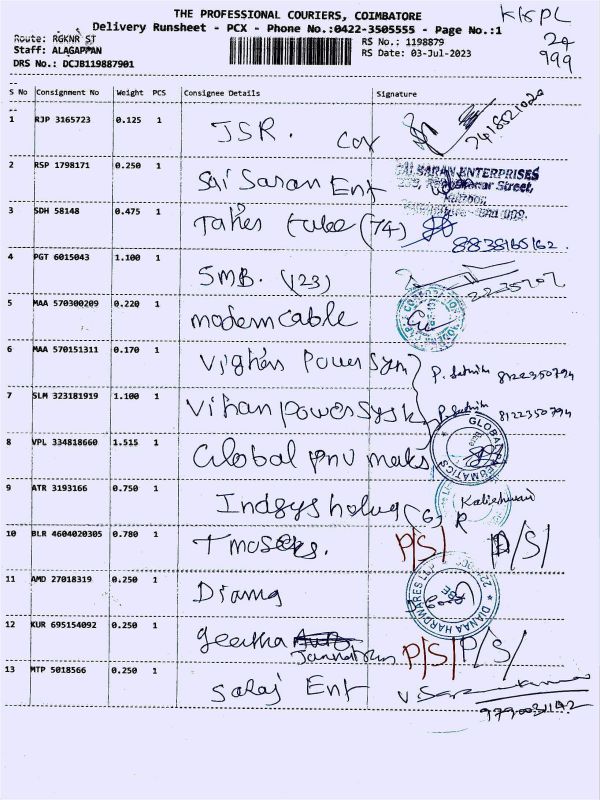 THE PROFESSIONAL COURIERS, COIMBATORE
KKPL
Delivery Runsheet - PCX - Phone No.:0422-3505555 - Page No.:1
Route: RGKNR ST
RS No.: 1198879
24
Staff: ALAGAPPAN
RS Date: 03-Jul-2023
999
DRS No.: DCJB119887901
S No Consignment No Weight PCS Consignee Details Signature
1 RJP 3165723 0.125 1 JSR.
7418521020
2 RSP 1798171 0.250 1 Sai Saran Ent
SAI SARAN ENTERPRISES
3 SDH 58148 0.475 1 (74)
8838165162.
4 PGT 6015043 1.100 1 SMB. (123)
5 MAA 570300209 0.220 1 modern cable
6 MAA 570151311 0.170 1 Power 8122350794
7 SLM 323181919 1.100 1 Vihan power 8122350794
8 VPL 334818660 1.515 1 Global
GLOBAL PNEUMATICS
9 ATR 3193166 0.750 1
10 BLR 4604020305 0.780 1 P/S/ P/S/
11 AMD 27018319 0.250 1
DIANAA HARDWARES LLP
12 KUR 695154092 0.250 1 geetha P/S/ P/S/
13 MTP 5018566 0.250 1 Ent